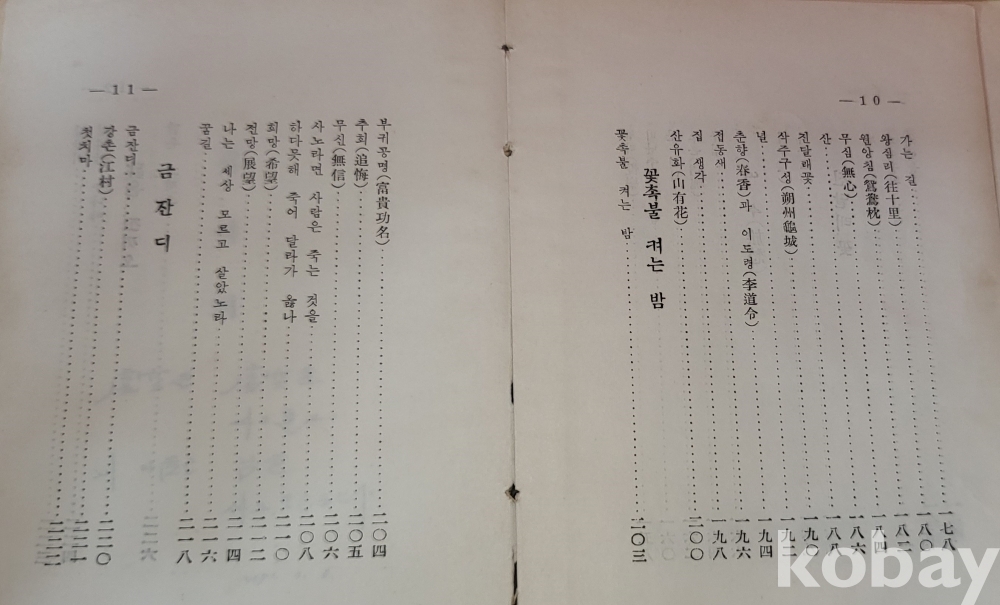 —10—
가는 길 一七八
왕십리(往十里) 一八〇
원앙침(鴛鴦枕) 一八二
무심(無心) 一八四
산 一八六
진달래꽃 一八八
삭주구성(朔州龜城) 一九〇
널 一九二
춘향(春香)과 이도령(李道令) 一九四
접동새 一九六
집 생각 一九八
산유화(山有花) 二〇〇
꽃촉불 켜는 밤
꽃촉불 켜는 밤 二〇三
—11—
부귀공명(富貴功名) 二〇四
추회(追悔) 二〇五
무신(無信) 二〇六
사노라면 사람은 죽는 것을 二〇八
하다못해 죽어 달라가 옳나 二一〇
희망(希望) 二一二
전망(展望) 二一四
나는 세상 모르고 살았노라 二一六
꿈길 二一八
금잔디
금잔디 二二〇
강촌(江村) 二二一
첫치마 二二二
kobay